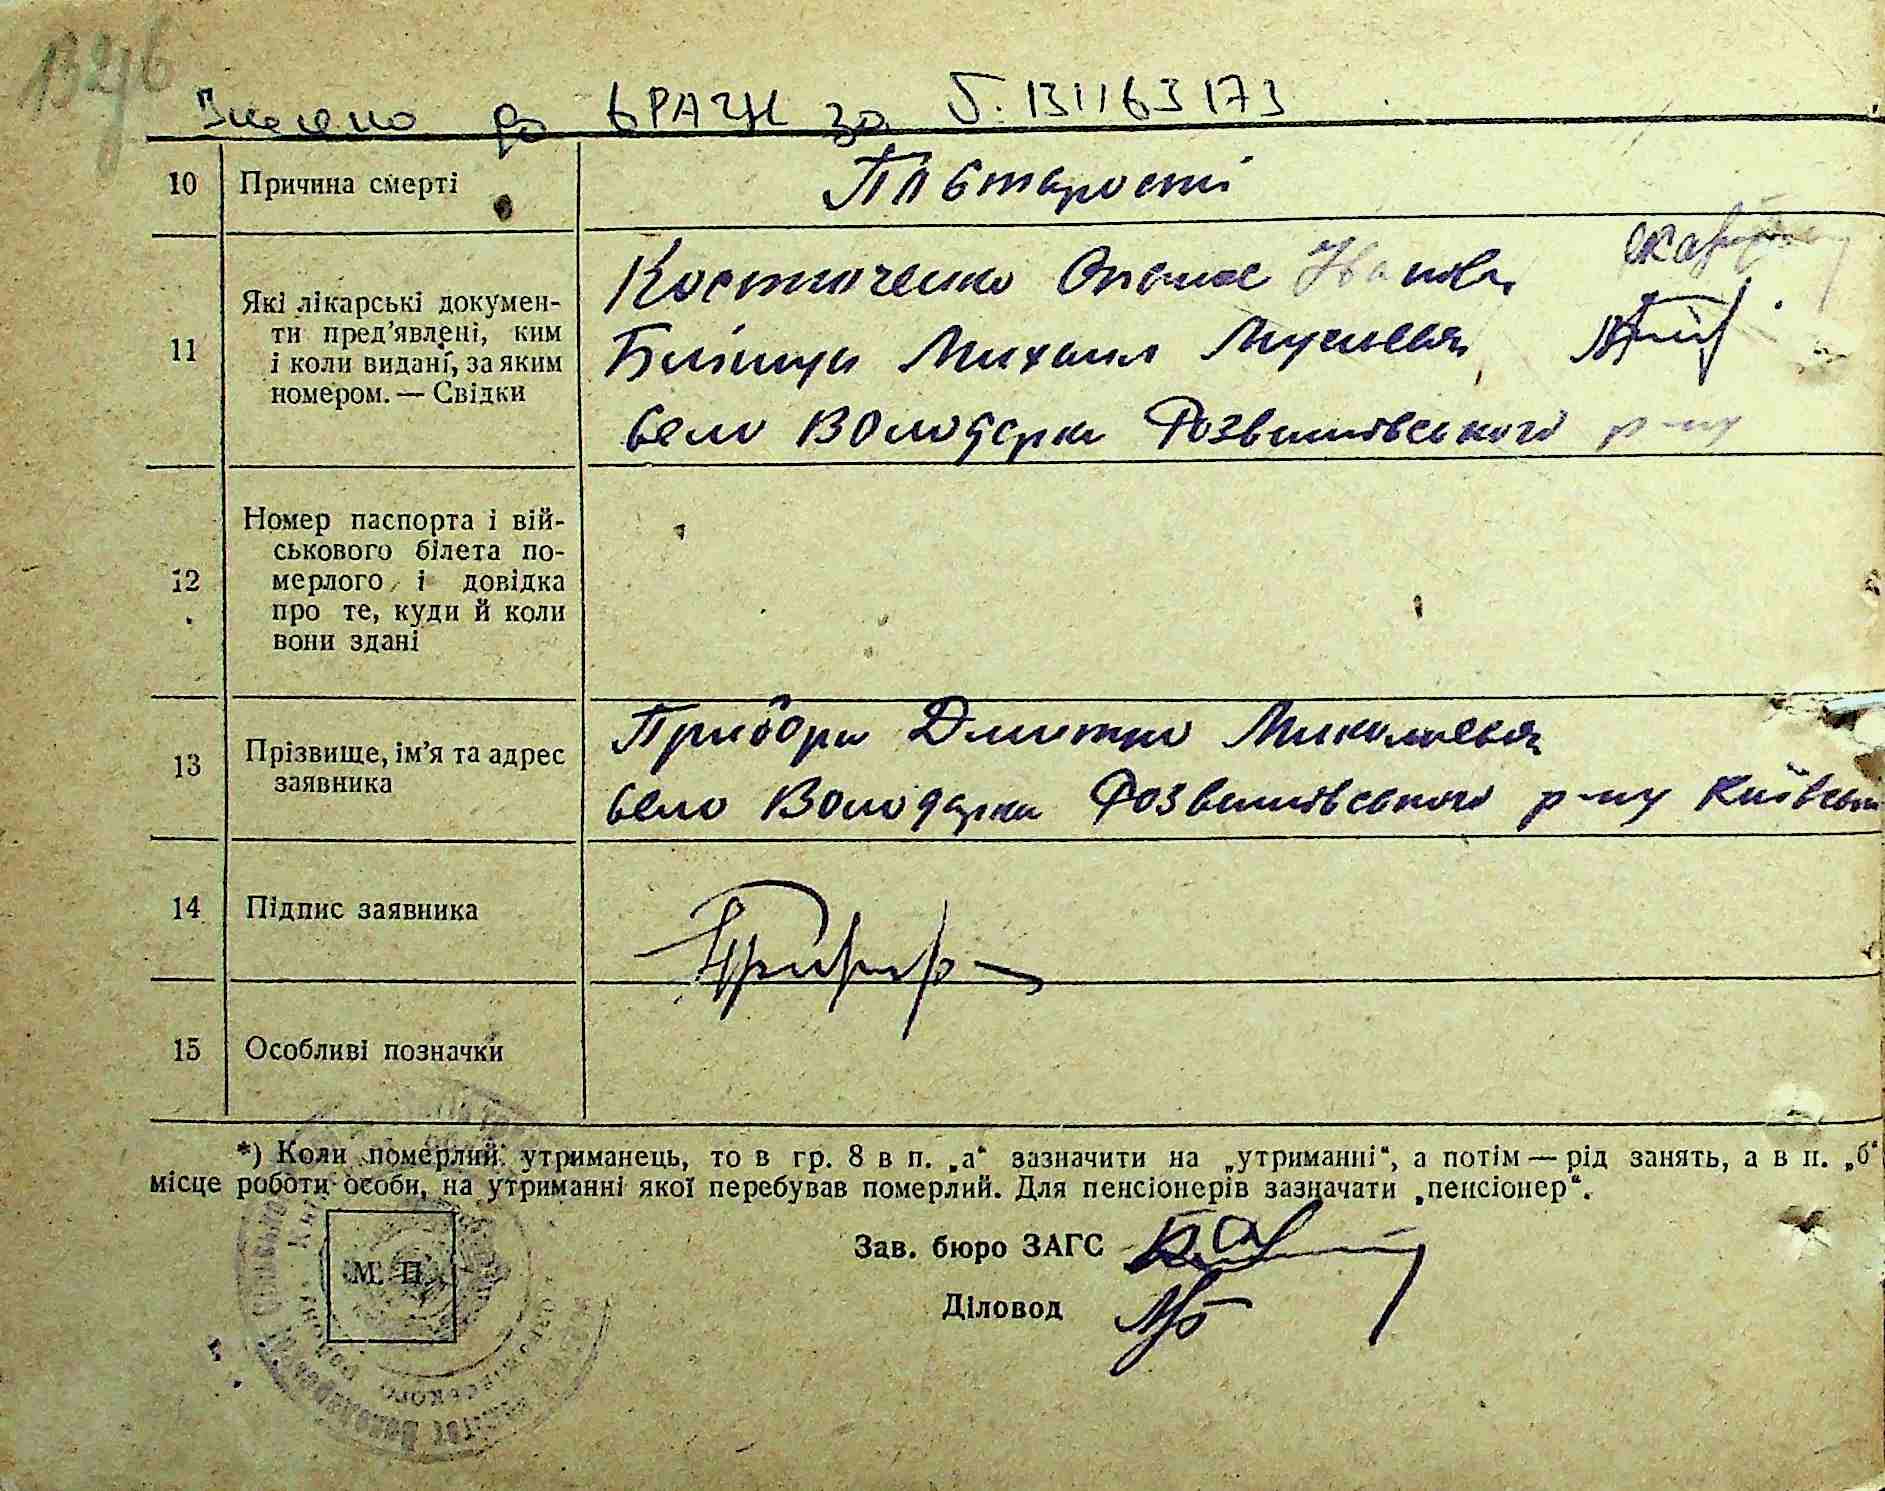 1326
Внесено до ЄРАЦН за б. 131163173
10 Причина смерті
По старості
11 Які лікарські докумен-
ти пред’явлені, ким
і коли видані, за яким
номером. — Свідки
Костюченко Опанас
Михаил
село Володарка Розважівського р-ну
12 Номер паспорта і вій-
ськового білета по-
мерлого і довідка
про те, куди й коли
вони здані
13 Прізвище, ім’я та адрес
заявника
Дмитро Миколаєвич
село Володарка Розважівського р-ну Київськ
14 Підпис заявника
15 Особливі позначки
*) Коли померлий утриманець, то в гр. 8 в п. „а“ зазначити на „утриманні“, а потім — рід занять, а в п. „б“
місце роботи особи, на утриманні якої перебував померлий. Для пенсіонерів зазначати „пенсіонер“.
М. П.
Зав. бюро ЗАГС
Діловод